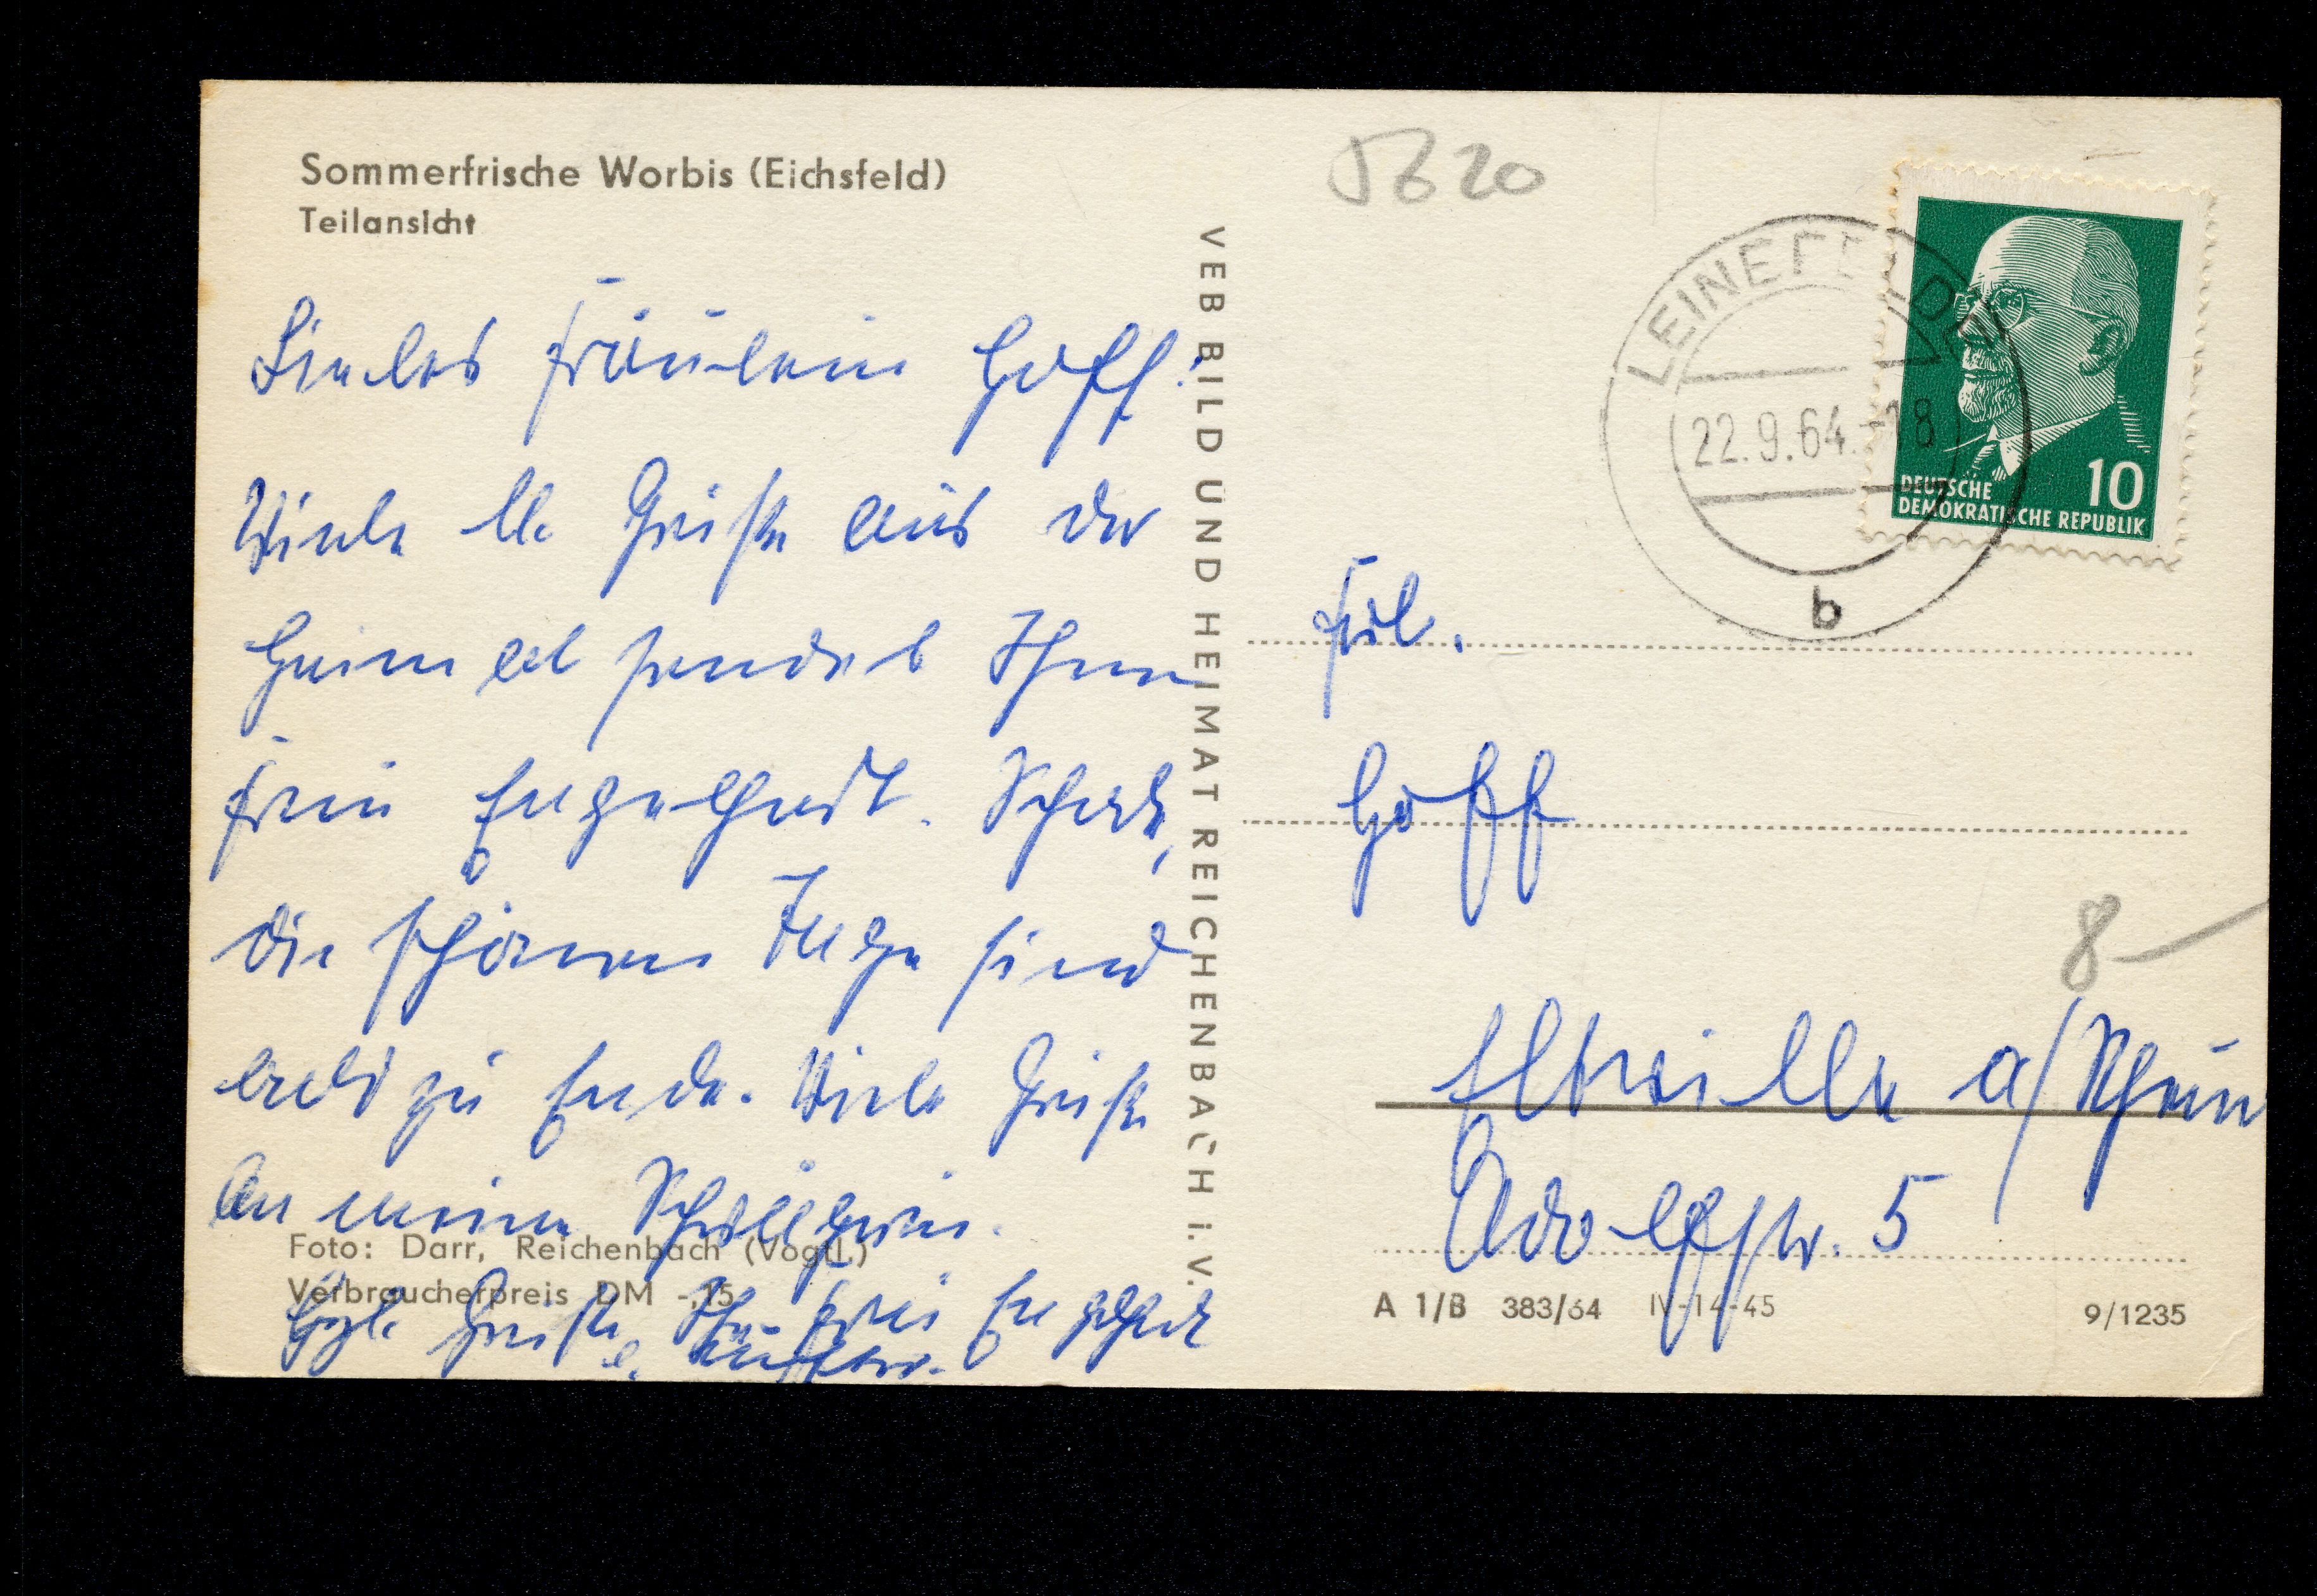 Sommerfrische Worbis (Eichsfeld)
Teilansicht
Liebes Fräulein Hoff!
Viele lb. Grüße aus der
Heimat sendet Ihnen
Frau Engelhardt. Schade,
die schönen Tage sind
bald zu Ende. Viele Grüße
an meine
Foto: Darr, Reichenbach (Vogtl.)
Verbraucherpreis DM -,15
Hzl. Grüße, Ihre Frau Engelhardt
VEB BILD UND HEIMAT REICHENBACH I. V.
5620
LEINEFELDE
22.9.64.-18
b
10
DEUTSCHE
DEMOKRATISCHE REPUBLIK
Frl.
Hoff
8
Eltville a/Rhein
Adolfstr. 5
A 1/B 383/64 IV-14-45 9/1235